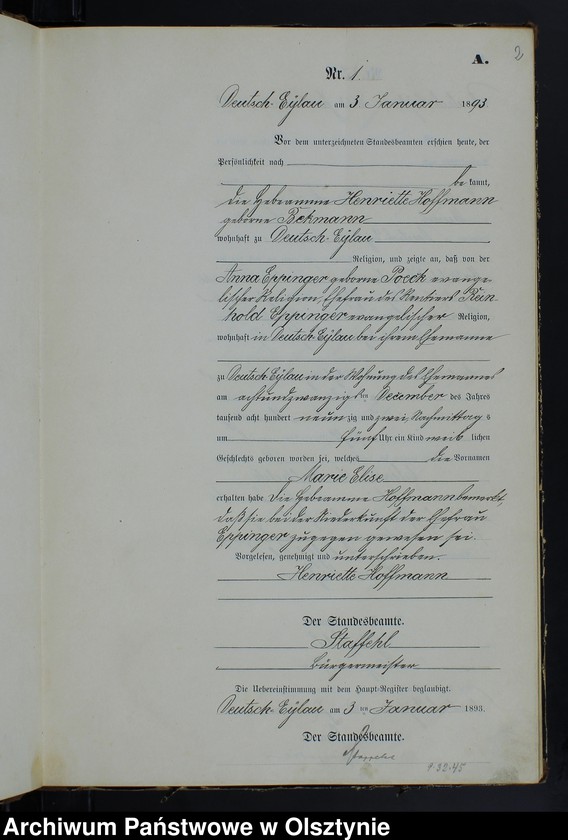 A.
2
Nr. 1.
Deutsch-Eylau am 3 Januar 1893.
Vor dem unterzeichneten Standesbeamten erschien heute, der
Persönlichkeit nach
be kannt,
die Hebeamme Henriette Hoffmann
geborne Bekmann
wohnhaft zu Deutsch-Eylau
Religion, und zeigte an, daß von der
Anna Eppinger geborne Poeck evange-
lischer Religion, Ehefrau des Rentiers Rein-
hold Eppinger evangelischer Religion,
wohnhaft in Deutsch Eylau bei ihrem Ehemanne
zu Deutsch Eylau in der Wohnung des Ehemannes
am achtundzwanzigsten December des Jahres
tausend acht hundert neunzig und zwei Nachmittags
um fünf Uhr ein Kind weib lichen
Geschlechts geboren worden sei, welches die Vornamen
Marie Elise
erhalten habe. Die Hebeamme Hoffmann bemerkt,
daß sie bei der Niederkunft der Ehefrau
Eppinger zugegen gewesen sei.
Vorgelesen, genehmigt und unterschrieben.
Henriette Hoffmann
Der Standesbeamte.
Staffehl
Bürgermeister
Die Uebereinstimmung mit dem Haupt-Register beglaubigt.
Deutsch-Eylau am 3 ten Januar 1893.
Der Standesbeamte.
Archiwum Państwowe w Olsztynie